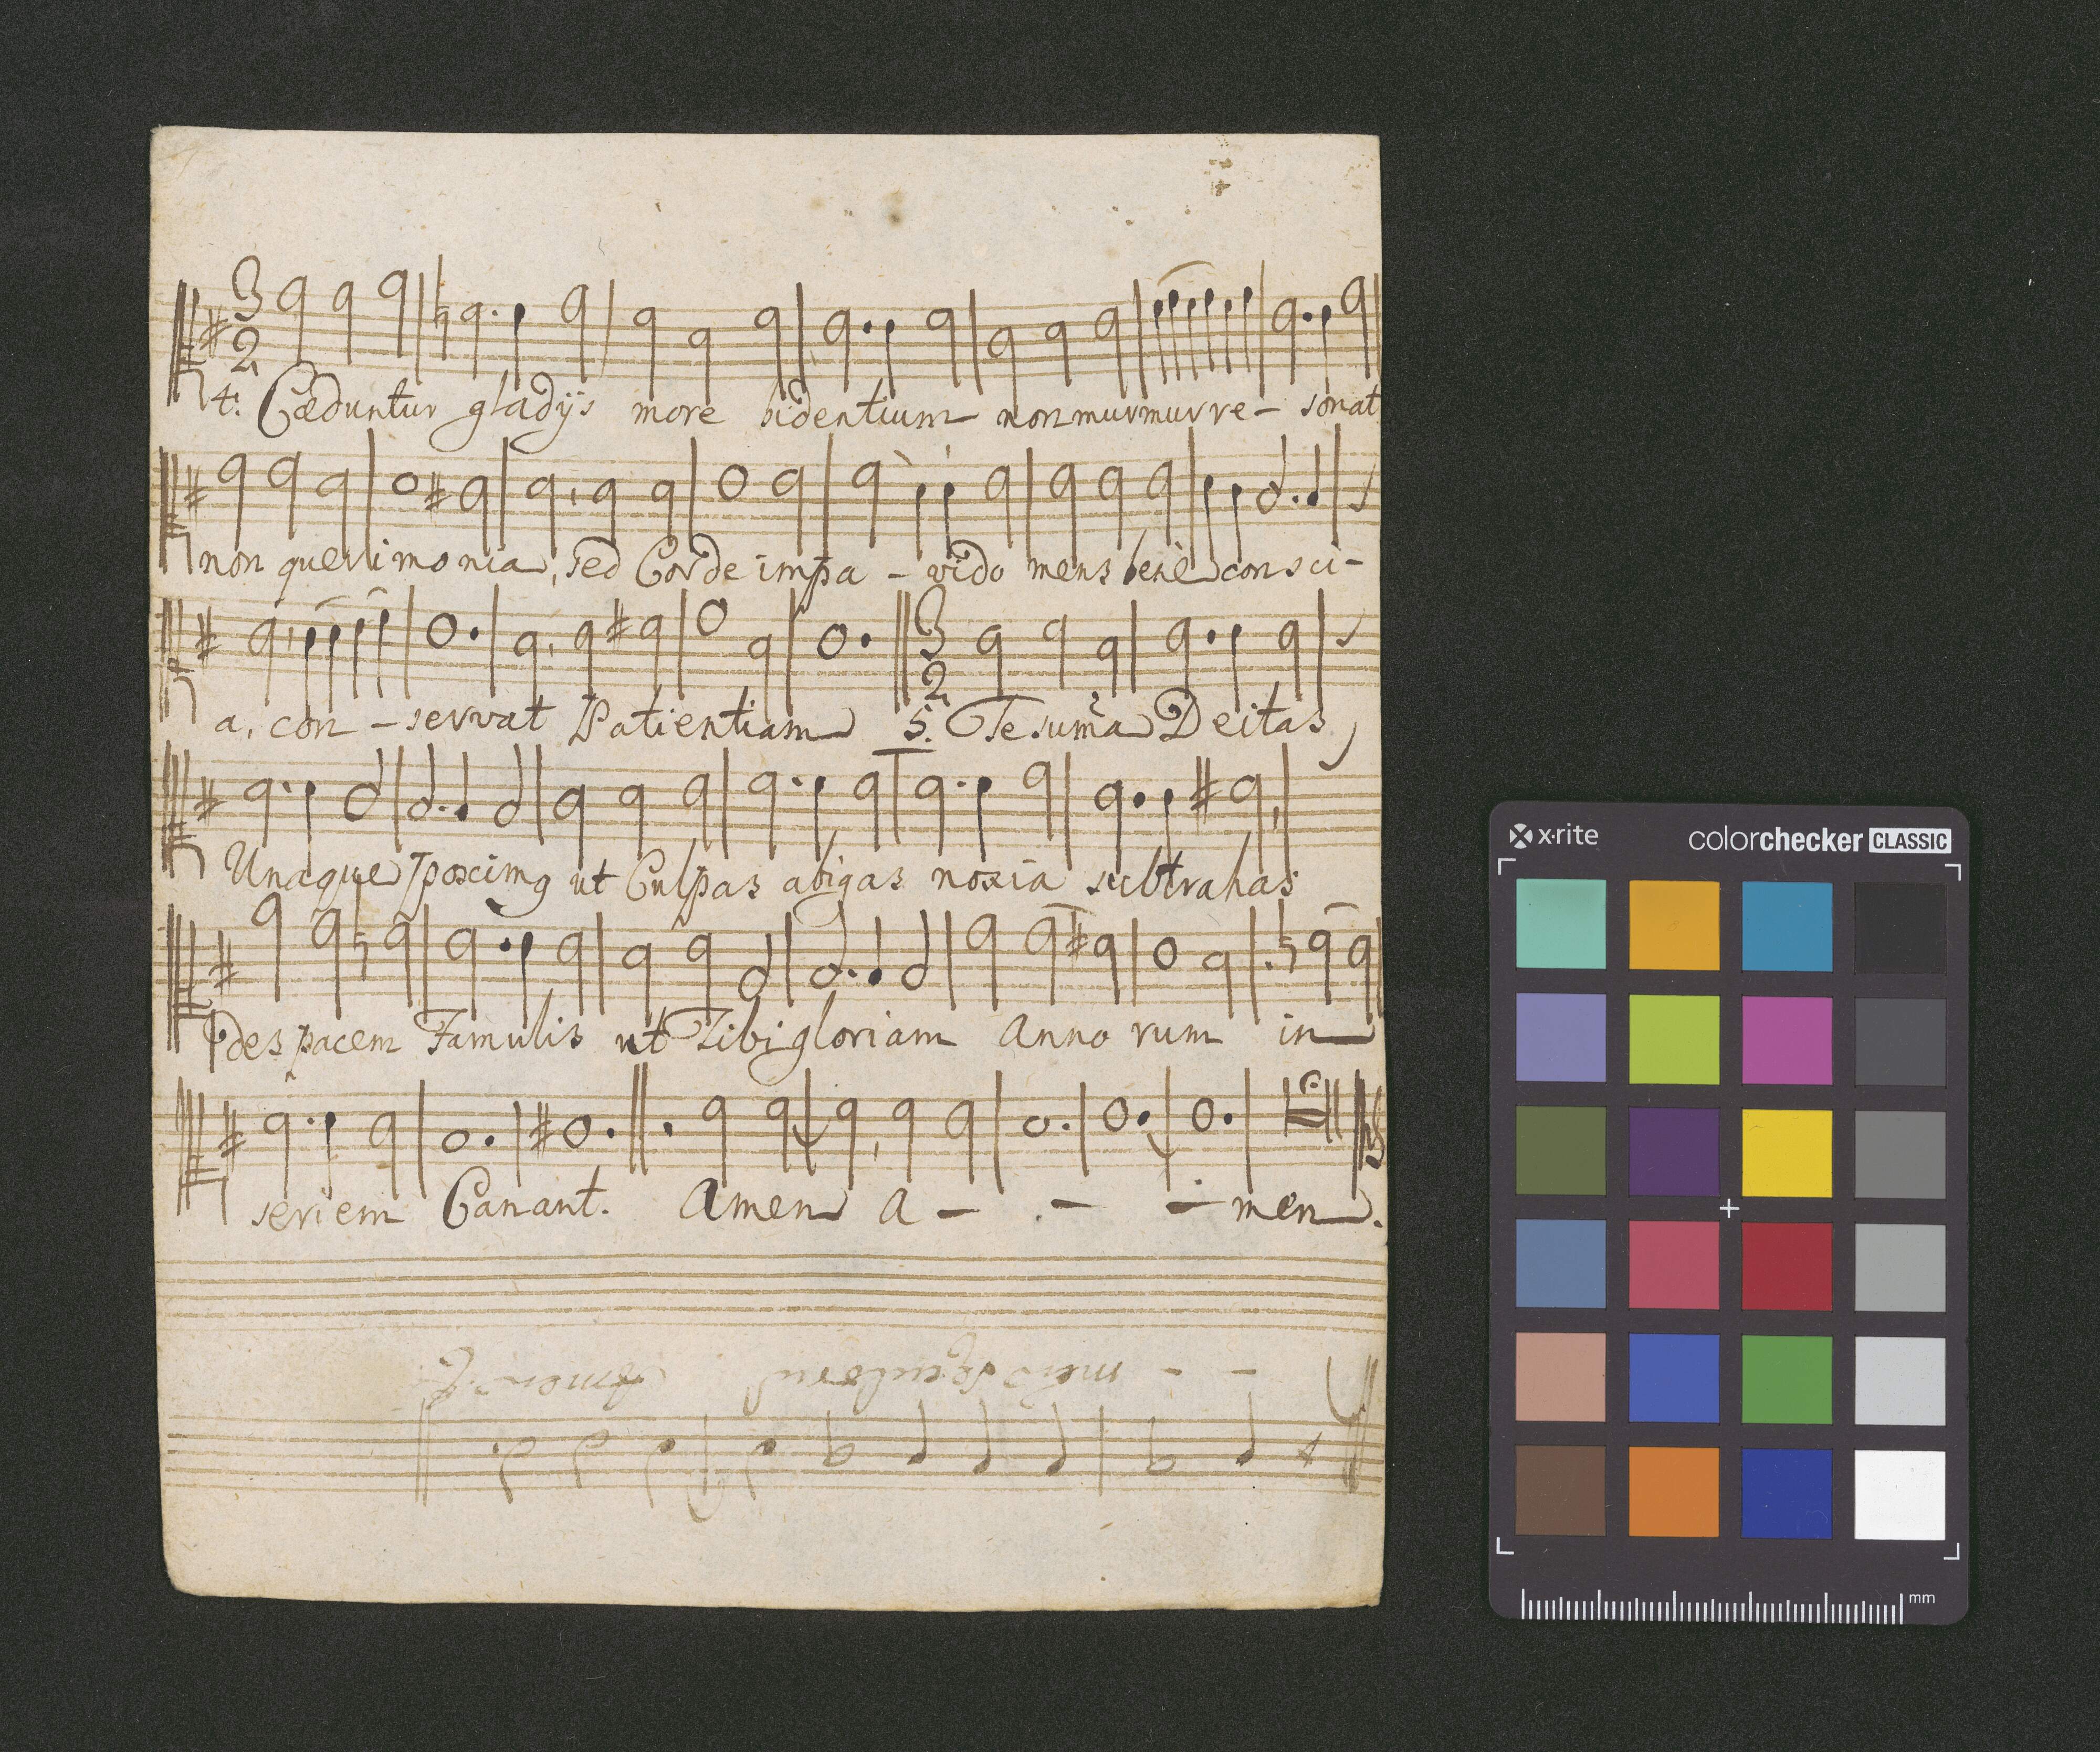 3
2
4. Cæduntur gladijs more bidentium non murmur re- sonat
non querimonia, sed Corde impa - vido mens benè consci-
3
2
a, con - servat Patientiam 5. Te suma Deitas
Unaque poscimg ut Culpas abigas noxia subtrahas
des pacem Famulis ut Tibi gloriam Anno rum in
seriem Canant. Amen A - - - men.
x-rite
colorchecker CLASSIC
mm